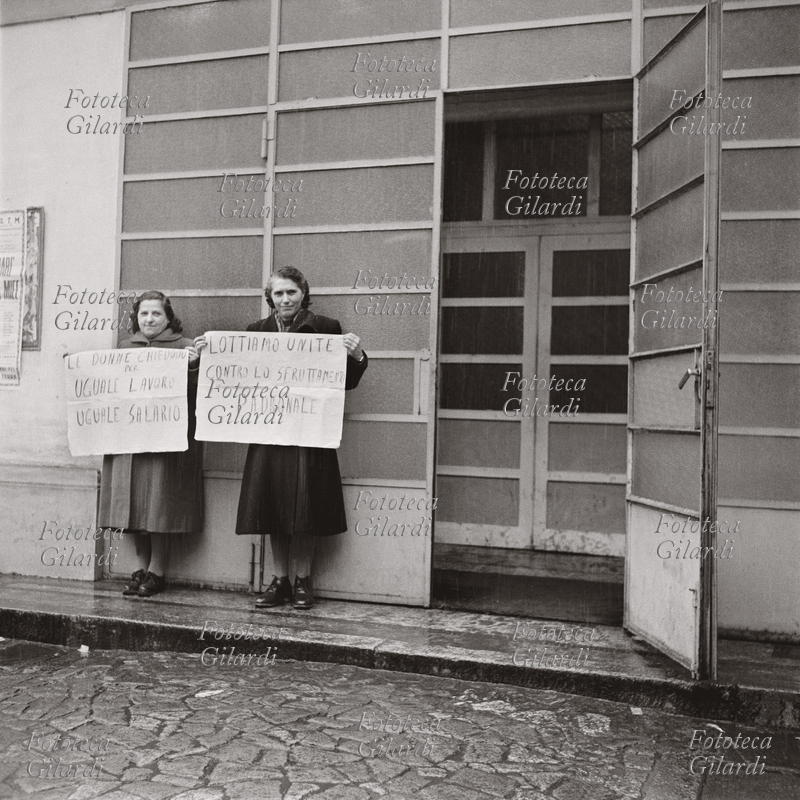 LE DONNE CHIEDONO
PER
UGUALE LAVORO
UGUALE SALARIO
LOTTIAMO UNITE
CONTRO LO SFRUTTAMENTO
PADRONALE
S.T.M.
Fototeca
Gilardi
Fototeca
Gilardi
Fototeca
Gilardi
Fototeca
Gilardi
Fototeca
Gilardi
Fototeca
Gilardi
Fototeca
Gilardi
Fototeca
Gilardi
Fototeca
Gilardi
Fototeca
Gilardi
Fototeca
Gilardi
Fototeca
Gilardi
Fototeca
Gilardi
Fototeca
Gilardi
Fototeca
Gilardi
Fototeca
Gilardi
Fototeca
Gilardi
Fototeca
Gilardi